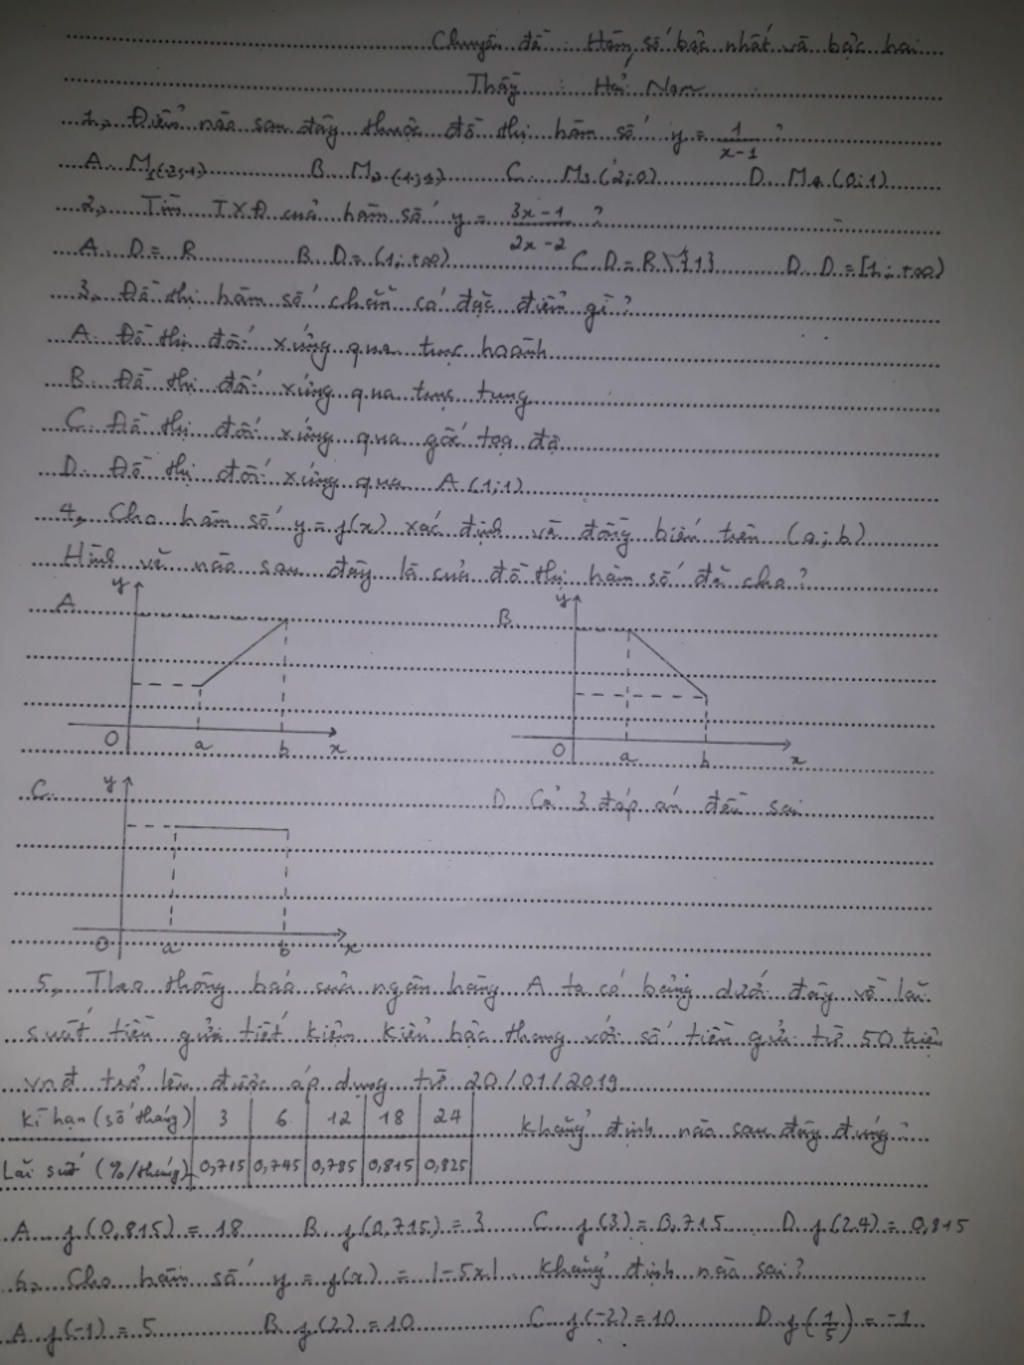 Chuyên đề : Hàm số bậc nhất và bậc hai
Thầy : Hải Nam
1, Điểm nào sau đây thuộc đồ thị hàm số y = 1/(x-1) ?
A. M1(2;1) B. M2(1;1) C. M3(2;0) D. M4(0;1)
2, Tìm TXĐ của hàm số y = (3x-1)/(2x-2) ?
A. D = R B. D = (1;+∞) C. D = R\{1} D. D = [1;+∞)
3, Đồ thị hàm số chẵn có đặc điểm gì ?
A. Đồ thị đối xứng qua trục hoành
B. Đồ thị đối xứng qua trục tung
C. Đồ thị đối xứng qua gốc tọa độ
D. Đồ thị đối xứng qua A(1;1)
4, Cho hàm số y = f(x) xác định và đồng biến trên (a;b)
Hình vẽ nào sau đây là của đồ thị hàm số đã cho ?
A y O a b x
B. y O a b x
C. y O a b x
D. Cả 3 đáp án đều sai
5, Theo thông báo của ngân hàng A ta có bảng dưới đây về lãi
suất tiền gửi tiết kiệm kiểu bậc thang với số tiền gửi từ 50 triệu
vnđ trở lên được áp dụng từ 20/01/2019
Kì hạn (số tháng) 3 6 12 18 24 Khẳng định nào sau đây đúng ?
Lãi suất (%/tháng) 0,715 0,745 0,785 0,815 0,825
A. f(0,815) = 18 B. f(0,715) = 3 C. f(3) = 0,715 D. f(24) = 0,815
6, Cho hàm số y = f(x) = |-5x| Khẳng định nào sai ?
A. f(-1) = 5 B. f(2) = 10 C. f(-2) = 10 D. f(1/5) = -1